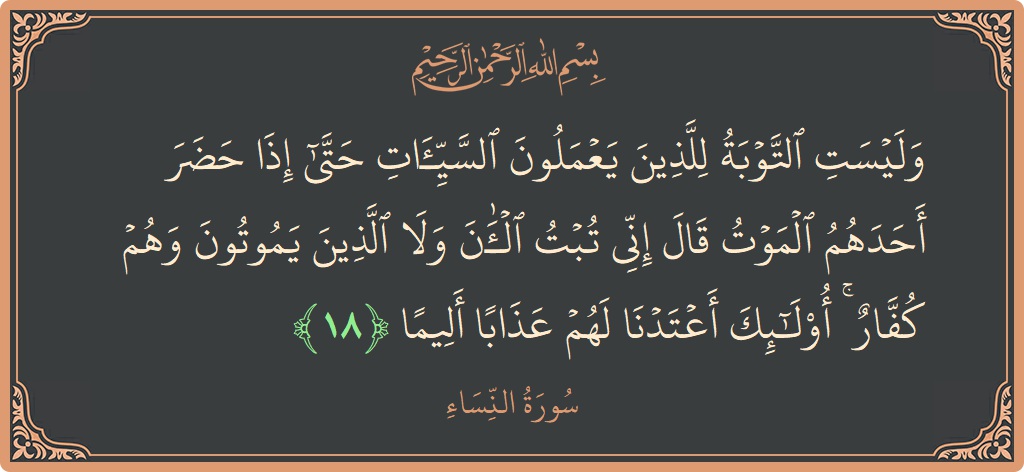 بِسْمِ اللَّهِ الرَّحْمَٰنِ الرَّحِيمِ
وَلَيْسَتِ ٱلتَّوْبَةُ لِلَّذِينَ يَعْمَلُونَ ٱلسَّيِّـَٔاتِ حَتَّىٰٓ إِذَا حَضَرَ
أَحَدَهُمُ ٱلْمَوْتُ قَالَ إِنِّى تُبْتُ ٱلْـَٰٔنَ وَلَا ٱلَّذِينَ يَمُوتُونَ وَهُمْ
كُفَّارٌ ۚ أُو۟لَـٰٓئِكَ أَعْتَدْنَا لَهُمْ عَذَابًا أَلِيمًا ﴿١٨﴾
سُورَةُ النِّسَاءِ